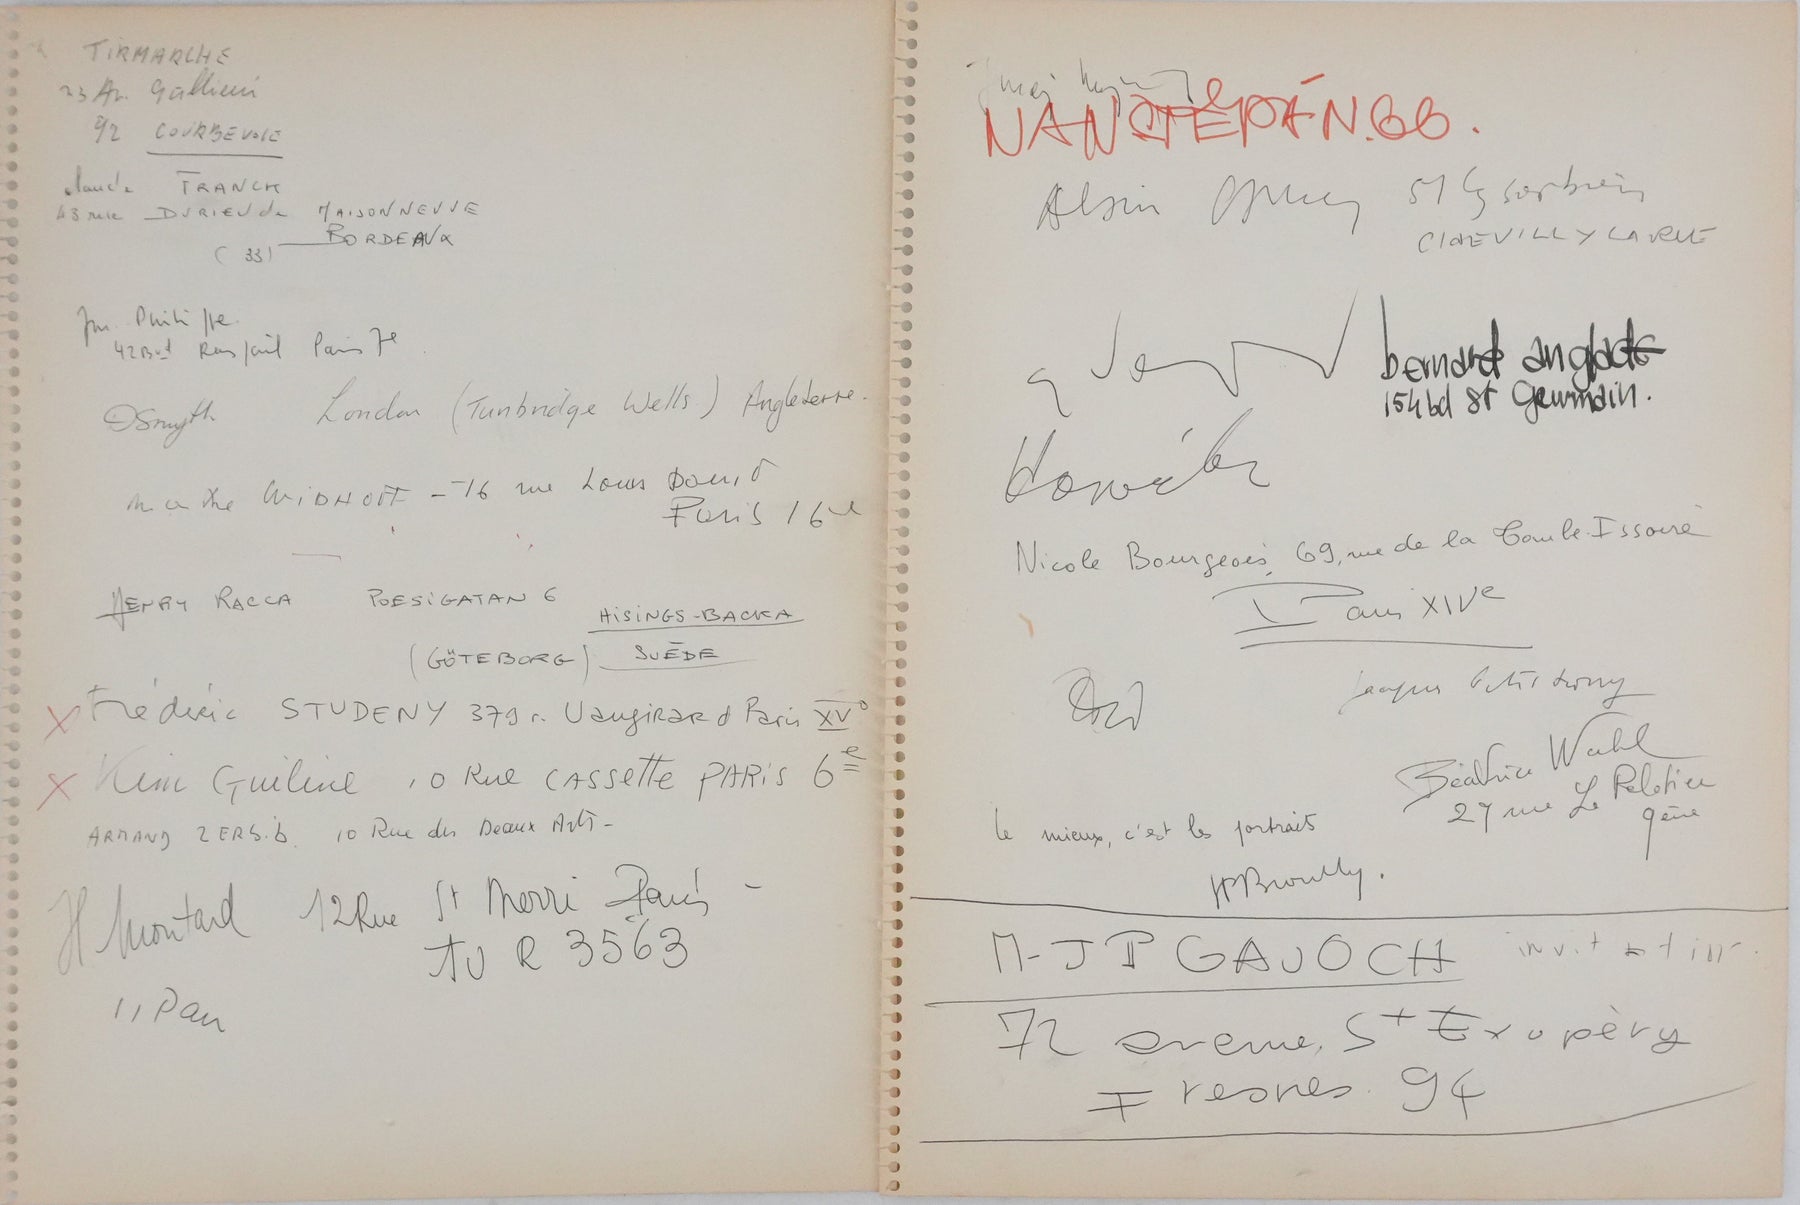 TIRMARCHE
23 Av. Gallieni
92 COURBEVOIE
Claude FRANCK
43 rue DURIEU de MAISONNEUVE
(33) BORDEAUX
Philippe
42 Bvd Raspail Paris 7e
DSmyth London (Tunbridge Wells) Angleterre.
WIDHOFF - 16 rue Louis David
Paris 16e
HENRY RACCA POESIGATAN 6
HISINGS-BACKA
(GÖTEBORG) SUÈDE
X Frédéric STUDENY 379 r. Vaugirard Paris XV°
X Kim Guiline 10 Rue CASSETTE PARIS 6e
ARMAND ZERBIB. 10 Rue des Beaux Arts -
H Montard 12 Rue St Merri Paris -
TU R 3563
11 Pan
NAN STEPÁN.66.
Alain
CHEVILLY LA RUE
bernard anglade
154 bd St Germain.
Nicole Bourgeois, 69, rue de la Tombe-Issoire
Paris XIVe
Jacques
Béatrice Wahl
27 rue Le Peletier
9ème
le mieux, c'est les portraits
HBrouilly.
M-JP GAUOCH invitation
72 avenue, St Exupèry
Fresnes. 94